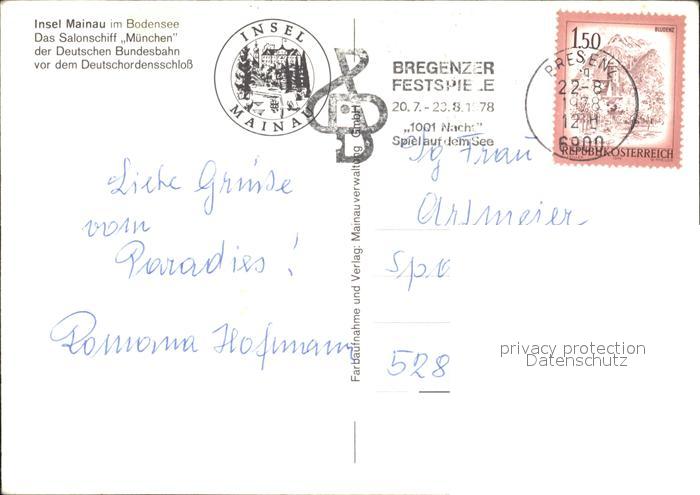 Insel Mainau im Bodensee
Das Salonschiff „München"
der Deutschen Bundesbahn
vor dem Deutschordensschloß
INSEL
MAINAU
BREGENZER
FESTSPIE.E
20.7. - 23.8.1978
„1001 Nacht"
Spiel auf dem See
22-8
1978
12 H
6900
1.50
BLUDENZ
REPUBLIK ÖSTERREICH
Liebe Grüsse
vom
Paradies!
Romana Hofmann
Farbaufnahme und Verlag: Mainauverwaltung GmbH
Frau
Artmeier
528
privacy protection
Datenschutz